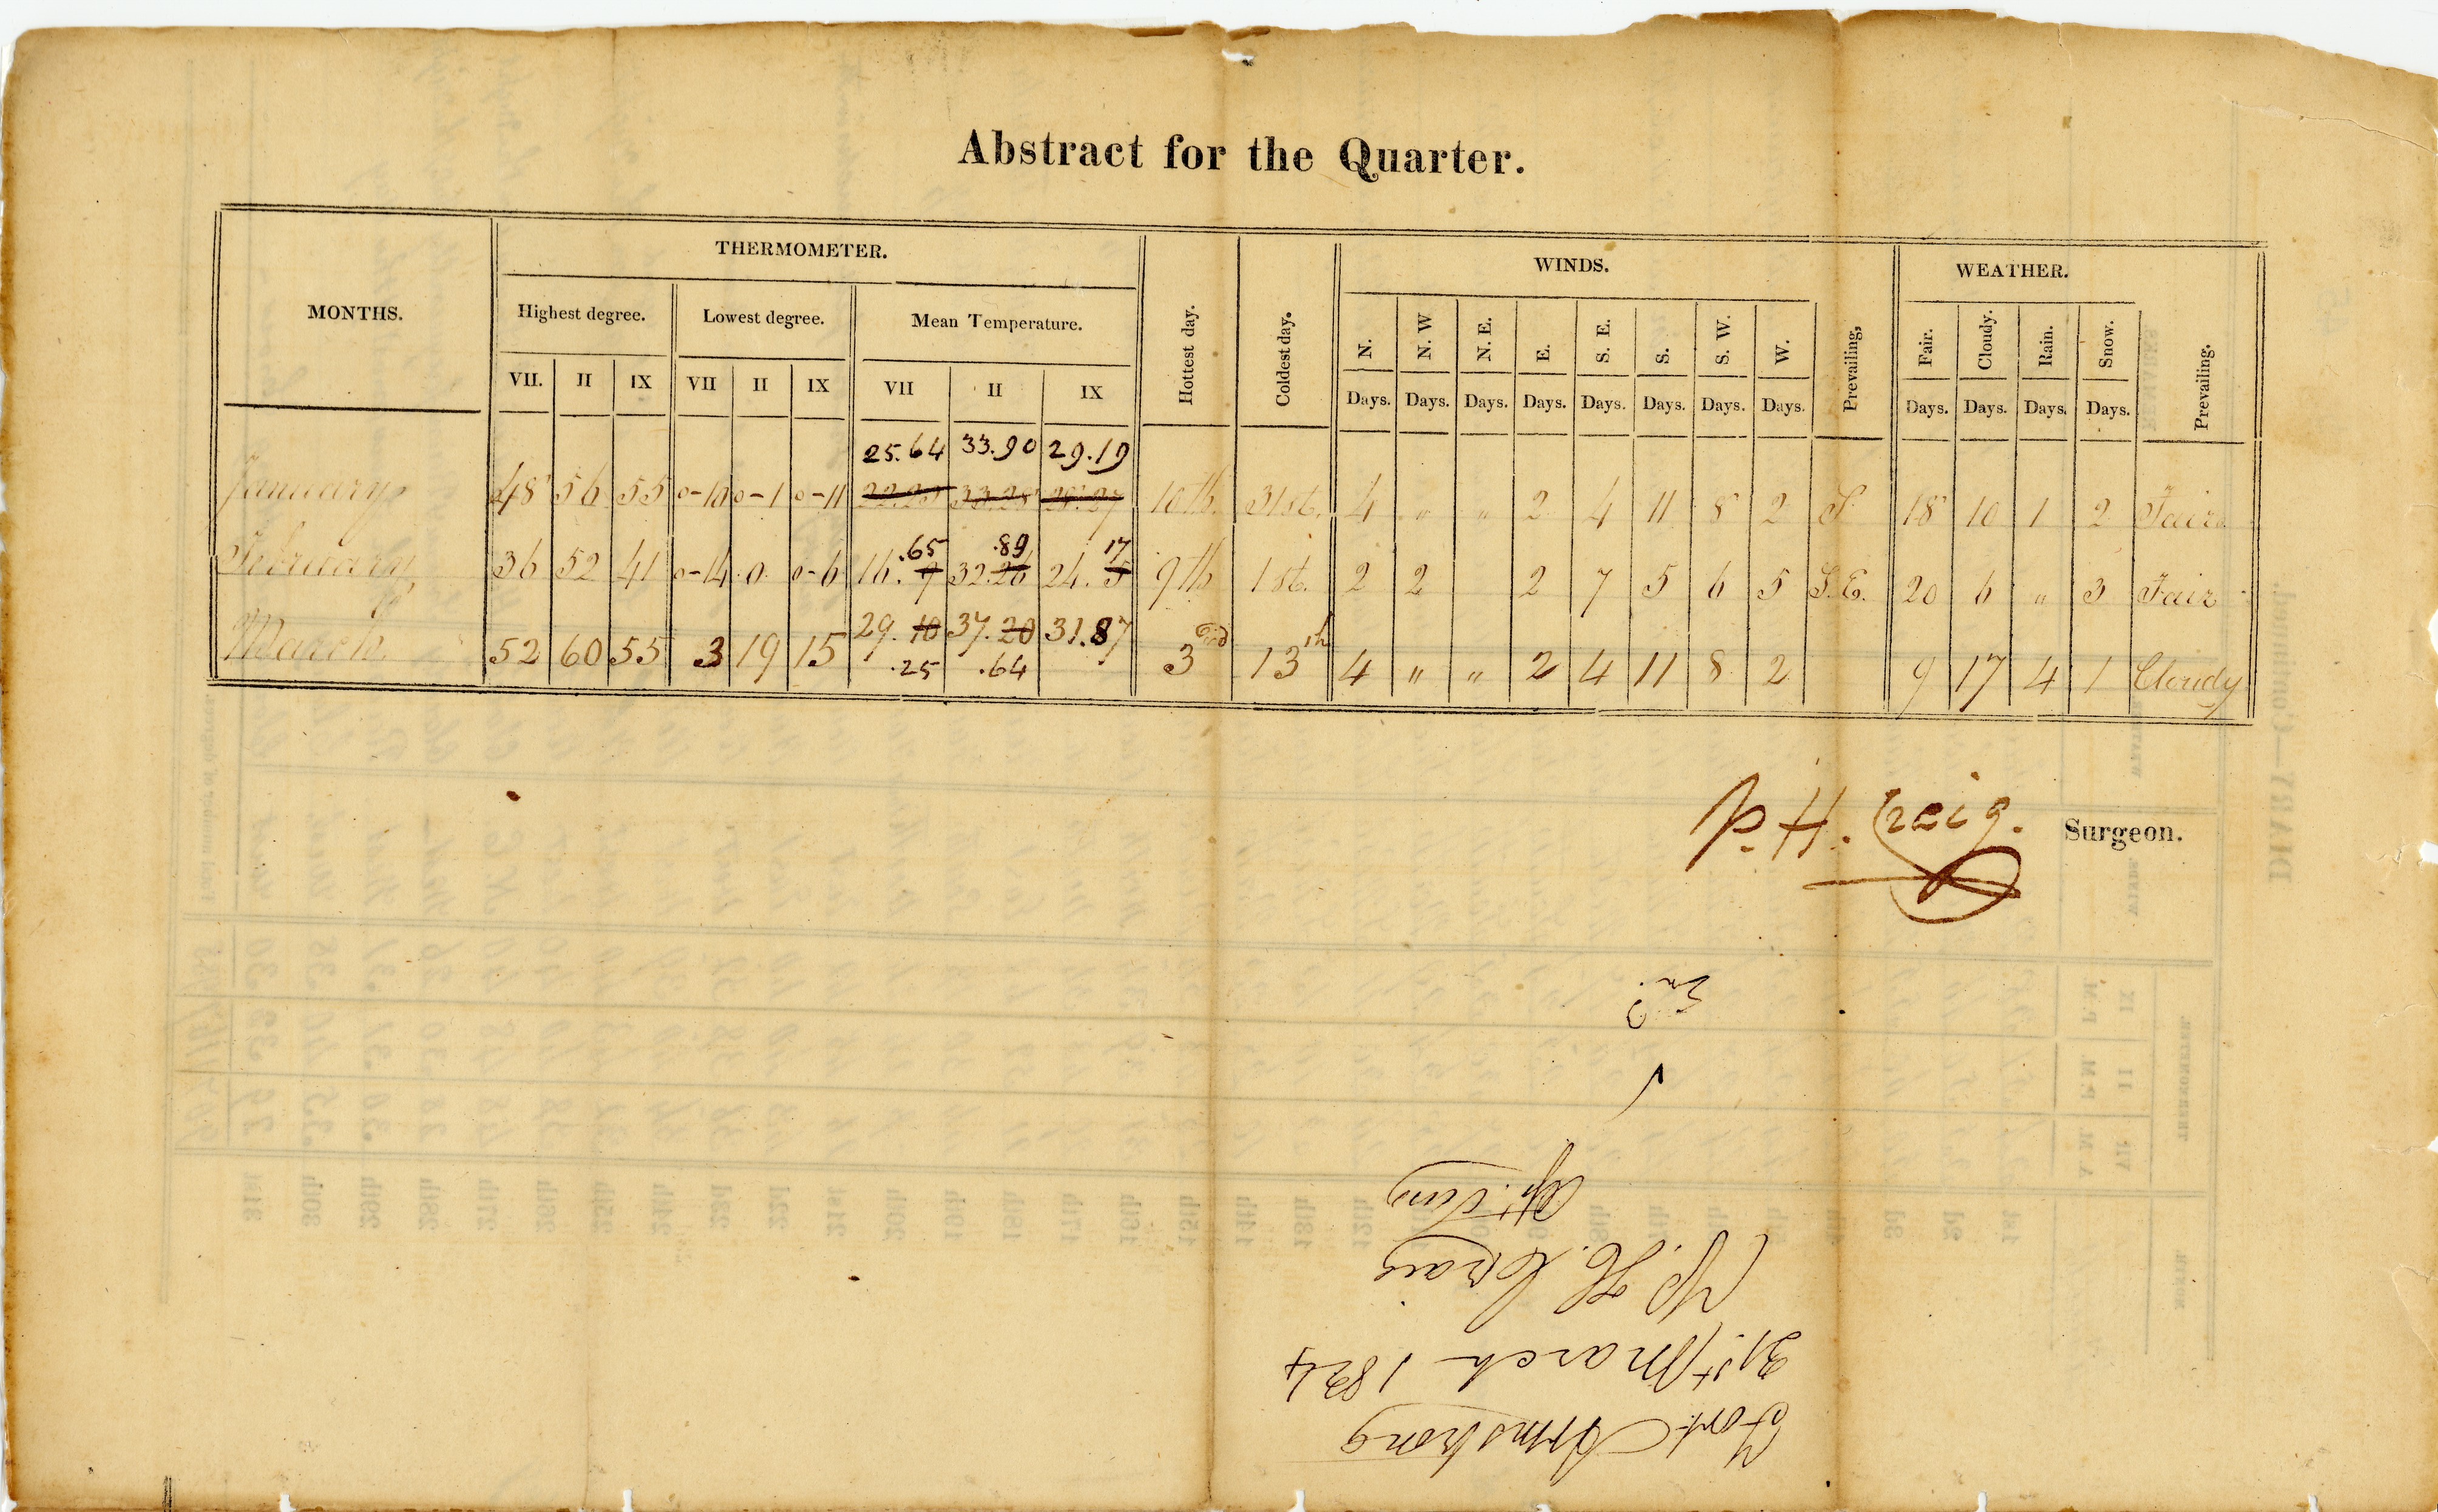 Abstract for the Quarter.
MONTHS. THERMOMETER. Hottest day. Coldest day. WINDS. WEATHER.
Highest degree. Lowest degree. Mean Temperature. N. N. W N. E. E. S. E. S. S. W. W. Prevailing, Fair. Cloudy. Rain. Snow. Prevailing.
VII. II IX VII II IX VII II IX Days. Days. Days. Days. Days. Days. Days. Days. Days. Days. Days. Days.
25.64 33.90 29.19
January 48 56 55 0-10 0-1 0-11 33.28 28.27 10th. 31st. 4 " " 2 4 11 8 2 S 18 10 1 2 Fair
.65 .89 17
February 36 52 41 0-14 0 0-6 16.9 32.26 24.5 9th 1st. 2 2 2 7 5 6 5 S.E. 20 6 " 3 Fair
29.10 37.20 31.87
March 52 60 55 3 19 15 3rd 13th 4 " " 2 4 11 8 2 9 17 4 1 Cloudy
.25 .64
P. H. Craig. Surgeon.
Fort Armstrong
31st March 1824
P. H. Craig